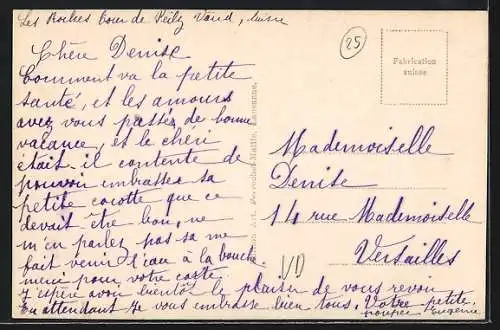 Les Rochers Tour de Peilz Vaud, Suisse
25
Fabrication
suisse
Chère Denise
Comment va la petite
santé, et les amours
avez vous passées de bonne
vacance, et le chéri
était il contente de
pouvoir embrasser sa
petite cocotte que ce
devait être bon, ne
m'en parlez pas sa me
fait venir l'eau à la bouche.
merci pour votre carte.
J'espère avoir bientôt le plaisir de vous revoir
En attendant je vous embrasse bien tous, Votre petite,
Eugénie
Mademoiselle
Denise
14 rue Mademoiselle
Versailles
VD
Art. Perrochet-Matile, Lausanne.